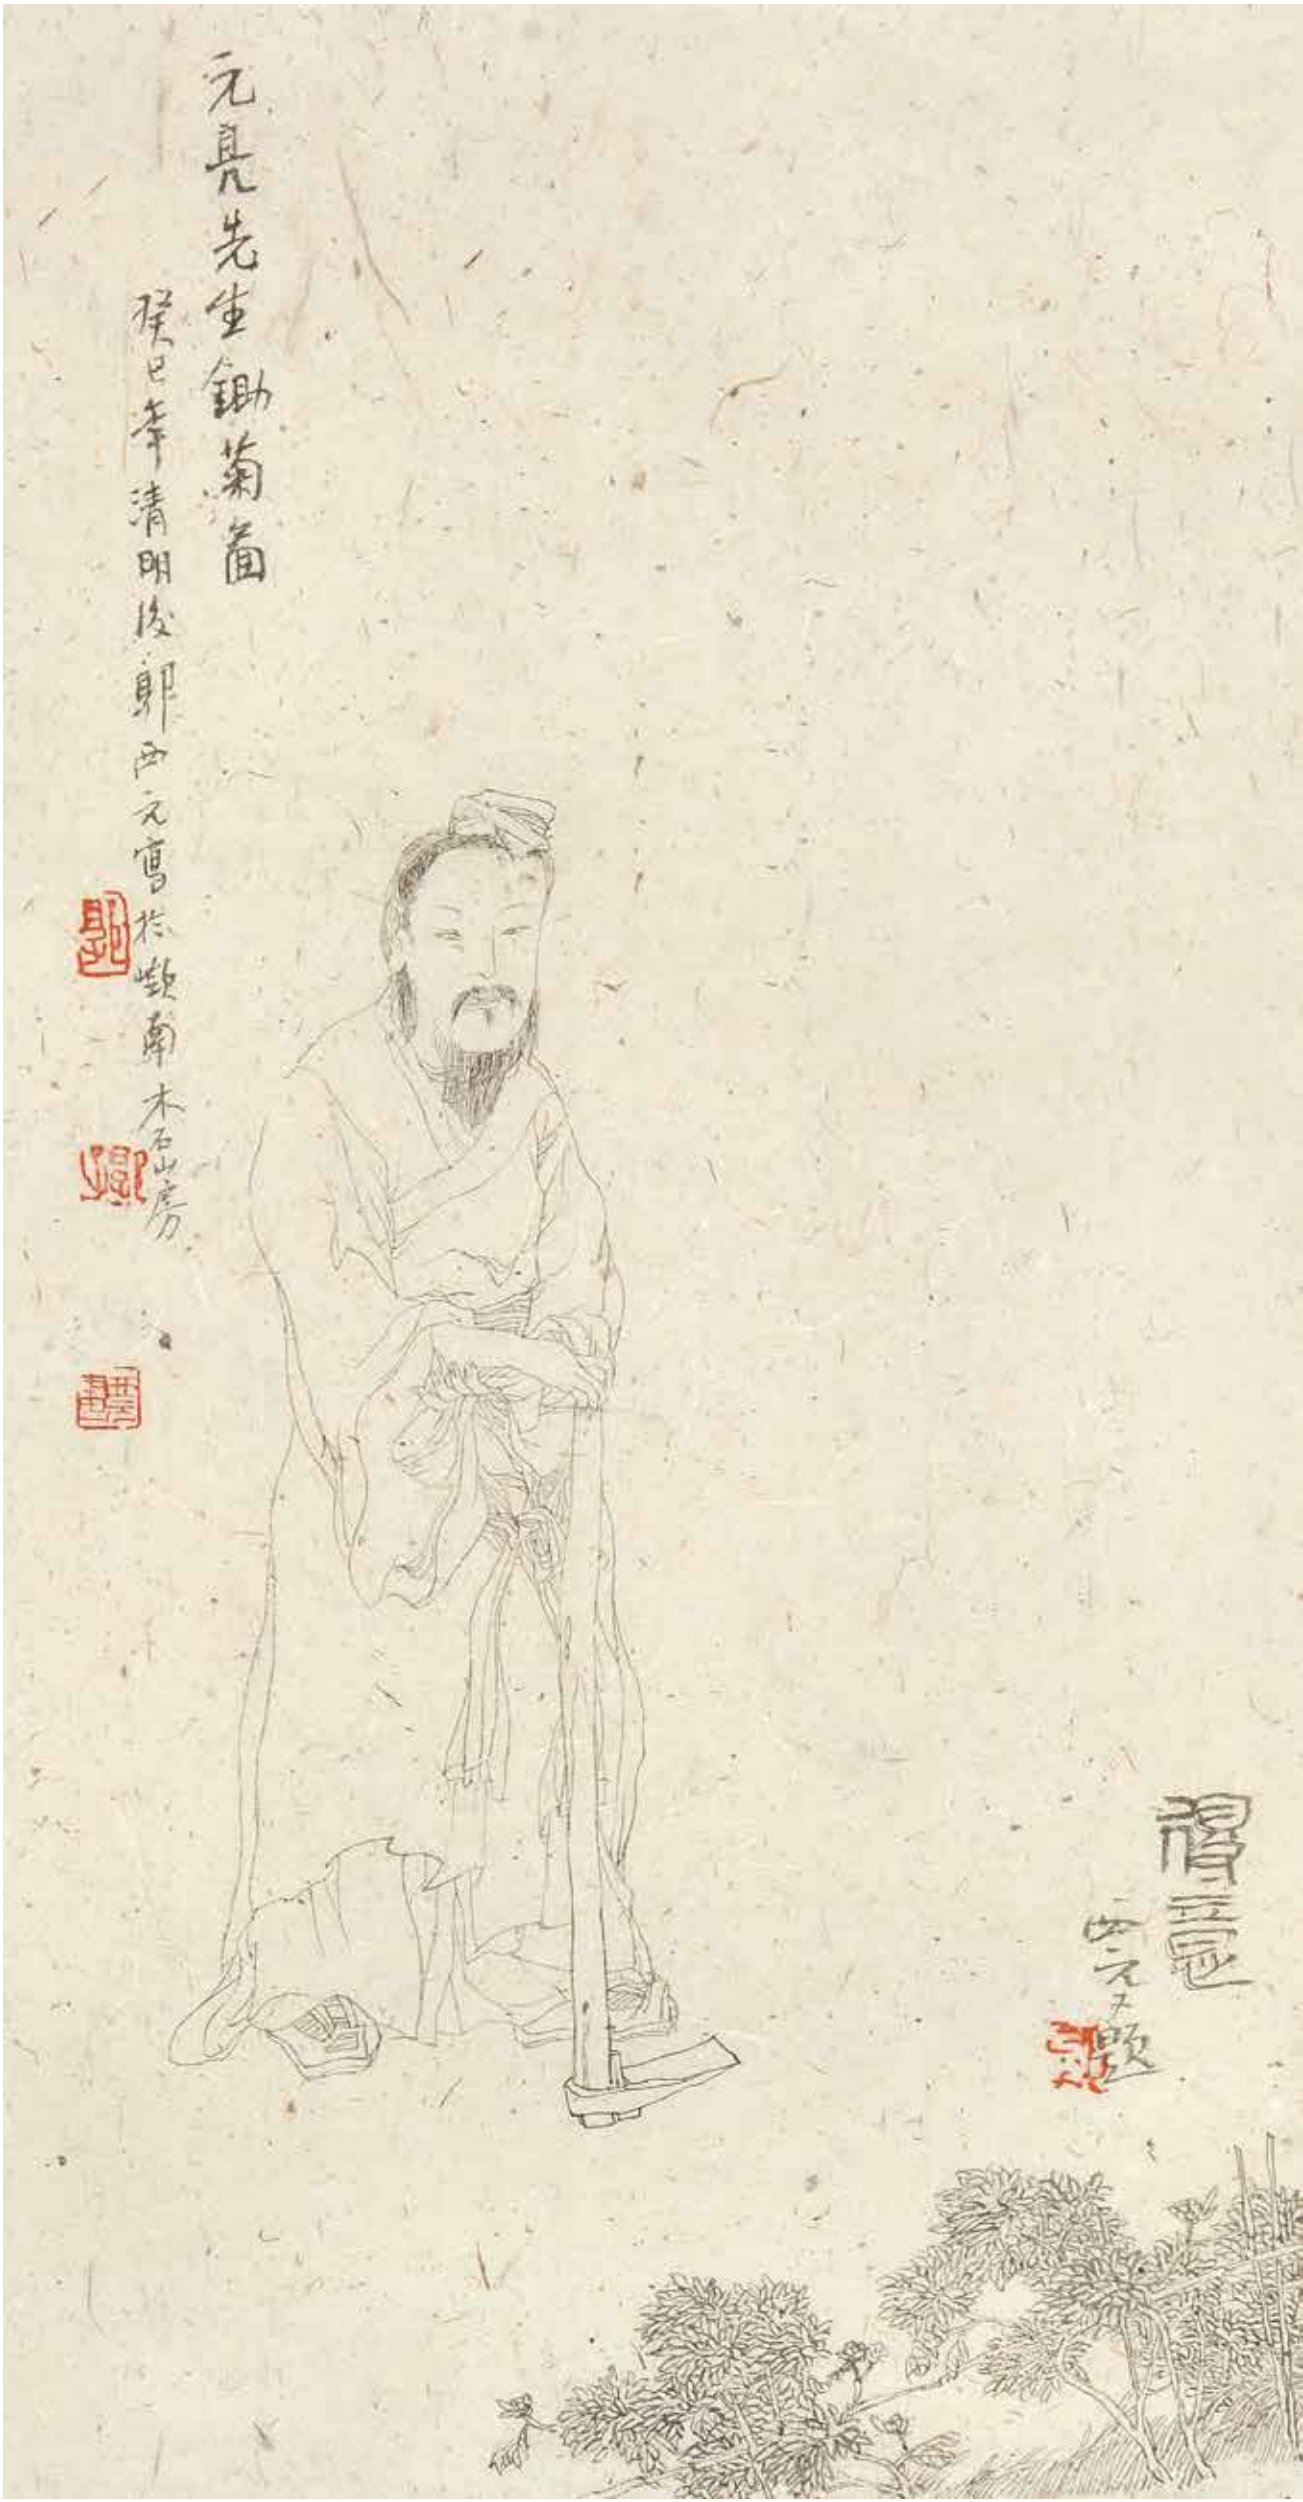 元亮先生鋤菊圖
癸巳年清明後郭西元寫於嶺南木石山房
得意
西元又題